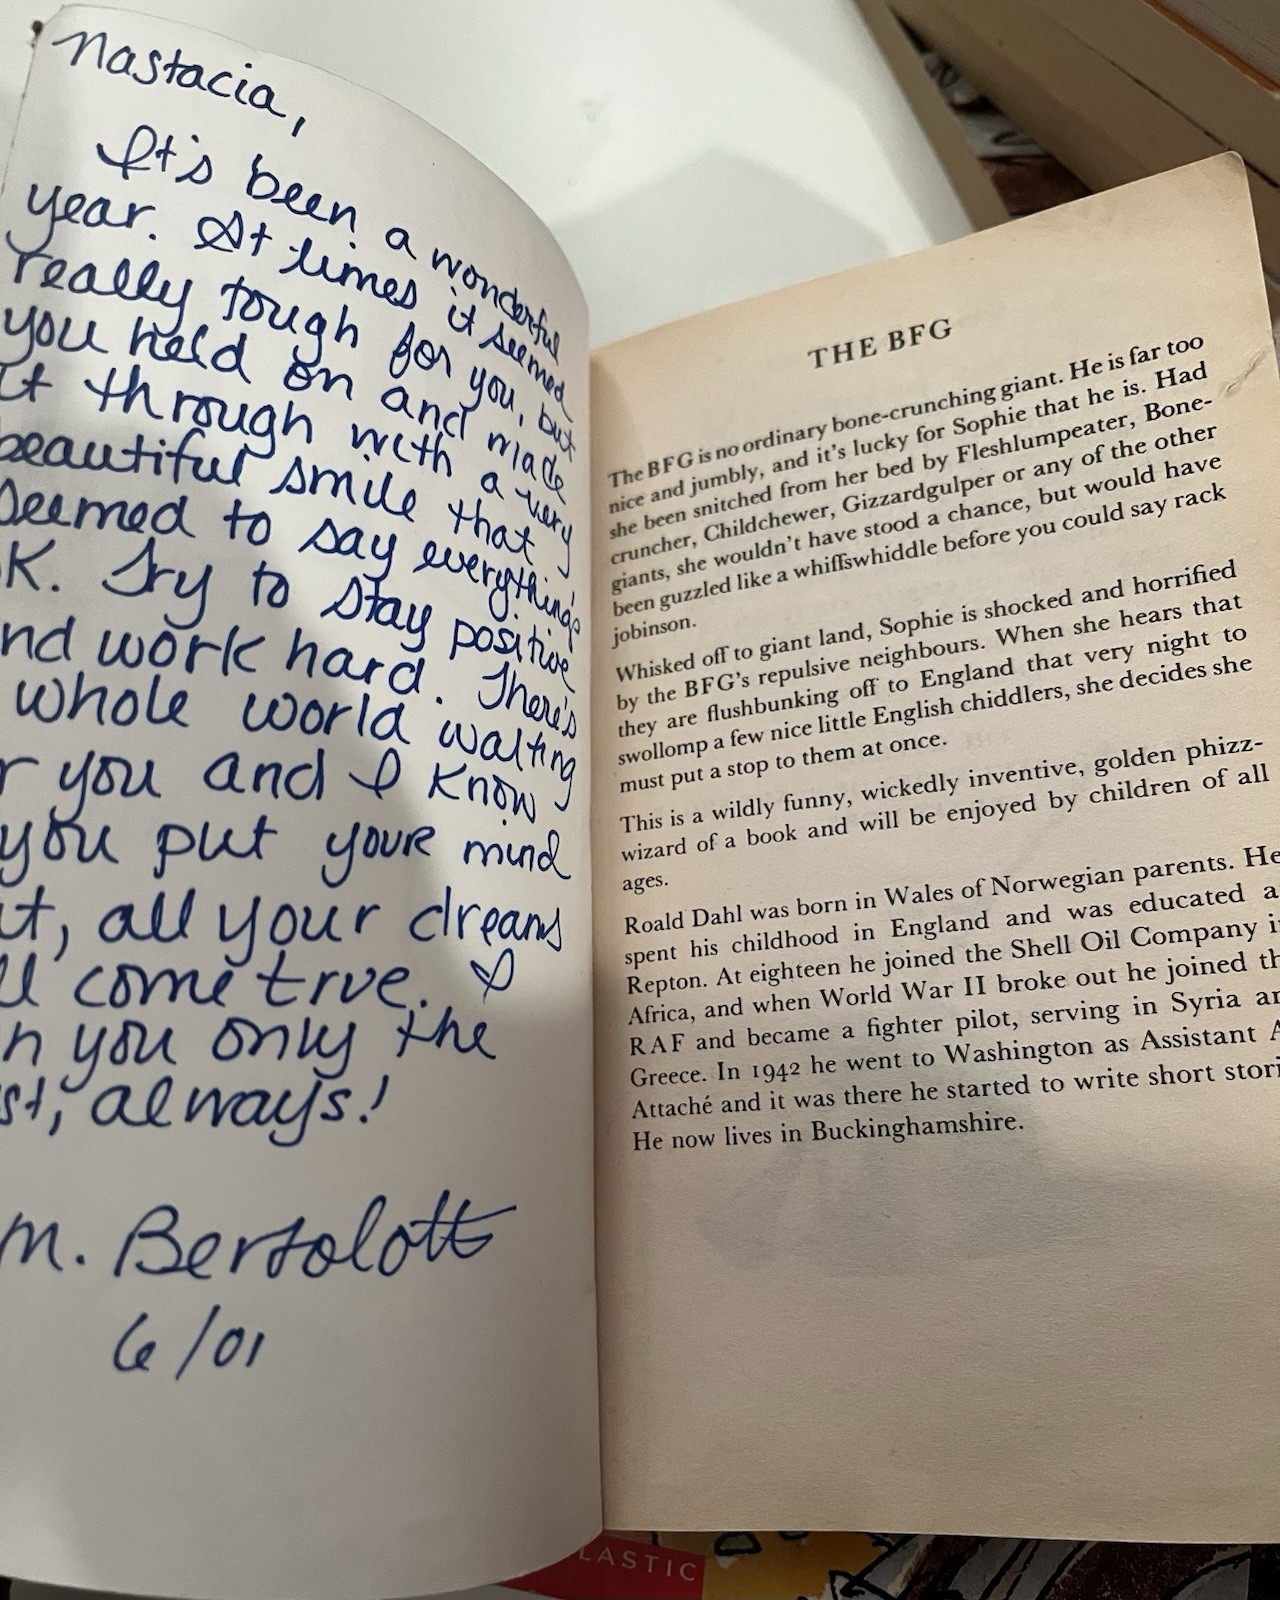 Nastacia,
It's been a wonderful
year. At times it seemed
really tough for you, but
you held on and made
it through with a very
beautiful smile that
seemed to say everything's
OK. Try to stay positive
nd work hard. There's
whole world waiting
r you and I know
you put your mind
it, all your dreams
ll come true. I
h you only the
st, always!
M. Bertolotti
6/01
THE BFG
The BFG is no ordinary bone-crunching giant. He is far too
nice and jumbly, and it's lucky for Sophie that he is. Had
she been snitched from her bed by Fleshlumpeater, Bone-
cruncher, Childchewer, Gizzardgulper or any of the other
giants, she wouldn't have stood a chance, but would have
been guzzled like a whiffswhiddle before you could say rack
jobinson.
Whisked off to giant land, Sophie is shocked and horrified
by the BFG's repulsive neighbours. When she hears that
they are flushbunking off to England that very night to
swollomp a few nice little English chiddlers, she decides she
must put a stop to them at once.
This is a wildly funny, wickedly inventive, golden phizz-
wizard of a book and will be enjoyed by children of all
ages.
Roald Dahl was born in Wales of Norwegian parents. He
spent his childhood in England and was educated a
Repton. At eighteen he joined the Shell Oil Company i
Africa, and when World War II broke out he joined th
RAF and became a fighter pilot, serving in Syria an
Greece. In 1942 he went to Washington as Assistant A
Attaché and it was there he started to write short stori
He now lives in Buckinghamshire.
LASTIC